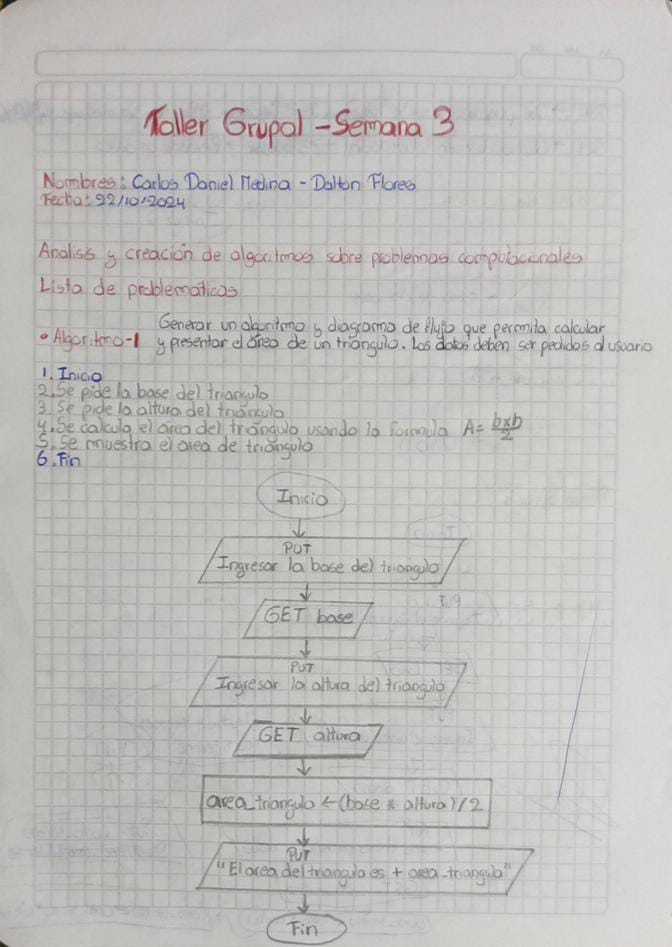 Taller Grupal - Semana 3
Nombres: Carlos Daniel Medina - Dalton Flores
Fecha: 22/10/2024
Análisis y creación de algoritmos sobre problemas computacionales
Lista de problemáticas
Generar un algoritmo y diagrama de flujo que permita calcular
• Algoritmo-1 y presentar el área de un triángulo. Los datos deben ser pedidos al usuario
1. Inicio
2. Se pide la base del triangulo
3. Se pide la altura del triángulo
4. Se calcula el area del triángulo usando la formula A= bxh/2
5. Se muestra el area de triángulo
6. Fin
Inicio
PUT
Ingresar la base del triangulo
GET base
PUT
Ingresar la altura del triangulo
GET altura
area_triangulo ← (base * altura)/2
PUT
"El area del triangulo es + area_triangulo"
Fin